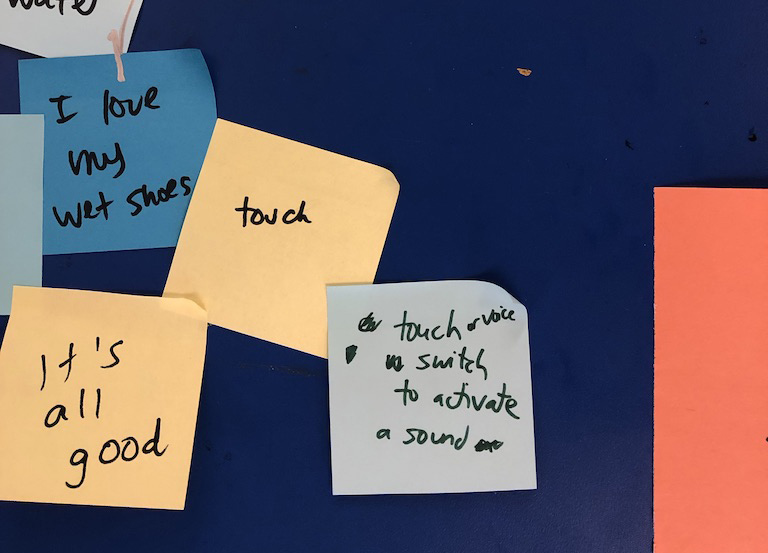 water
I love
my
wet shoes
touch
It's
all
good
touch or voice
switch
to activate
a sound